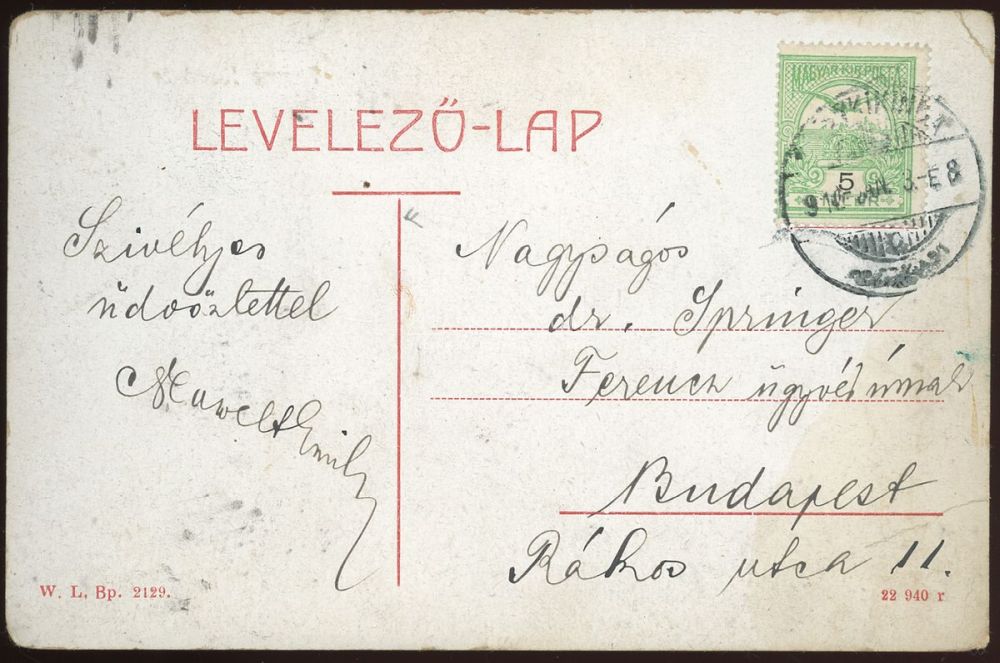 LEVELEZŐ-LAP
MAGYAR KIR POSTA
5
Szivélyes
üdvözlettel
Emil
Nagyságos
dr. Springer
Ferencz ügyvéd úrnak
Budapest
Rákos utca 11.
W. L. Bp. 2129.
22 940 r